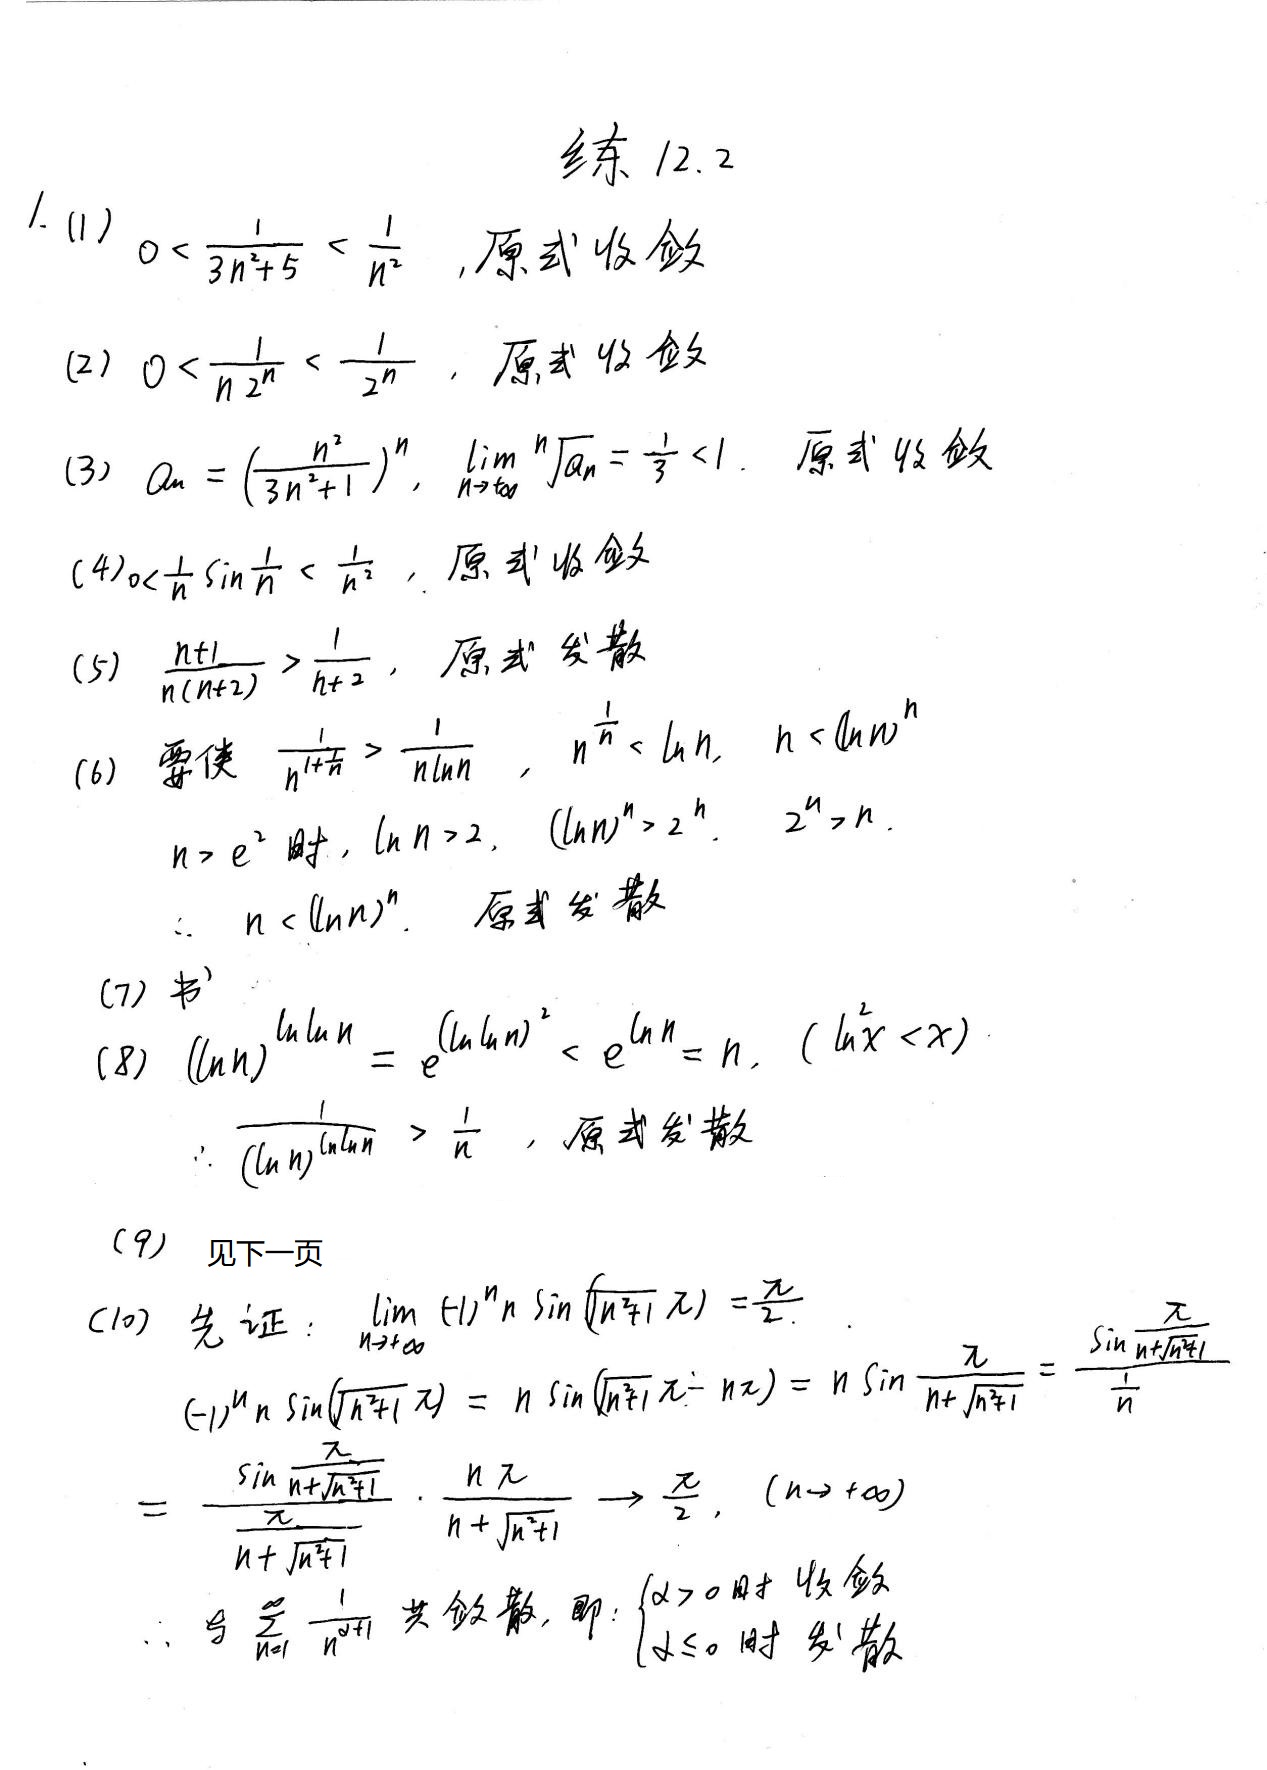 练 12.2
1. (1) 0 < \frac{1}{3n^2+5} < \frac{1}{n^2} , 原式收敛
(2) 0 < \frac{1}{n 2^n} < \frac{1}{2^n} , 原式收敛
(3) a_n = (\frac{n^2}{3n^2+1})^n, \lim_{n→+∞} \sqrt[n]{a_n} = \frac{1}{3} < 1. 原式收敛
(4) 0 < \frac{1}{n} sin \frac{1}{n} < \frac{1}{n^2} , 原式收敛
(5) \frac{n+1}{n(n+2)} > \frac{1}{n+2} , 原式发散
(6) 要使 \frac{1}{n^{1+\frac{1}{n}}} > \frac{1}{n ln n} , n^{\frac{1}{n}} < ln n, n < (ln n)^n
n > e^2 时, ln n > 2, (ln n)^n > 2^n. 2^n > n.
∴ n < (ln n)^n. 原式发散
(7) 书
(8) (ln n)^{ln ln n} = e^{(ln ln n)^2} < e^{ln n} = n, (ln^2 x < x).
∴ \frac{1}{(ln n)^{ln ln n}} > \frac{1}{n} , 原式发散
(9) 见下一页
(10) 先证: \lim_{n→+∞} (-1)^n n sin(\sqrt{n^2+1} π) = \frac{π}{2}.
(-1)^n n sin(\sqrt{n^2+1} π) = n sin(\sqrt{n^2+1} π - nπ) = n sin \frac{π}{n+\sqrt{n^2+1}} = \frac{sin \frac{π}{n+\sqrt{n^2+1}}}{\frac{1}{n}}
= \frac{sin \frac{π}{n+\sqrt{n^2+1}}}{\frac{π}{n+\sqrt{n^2+1}}} · \frac{nπ}{n+\sqrt{n^2+1}} → \frac{π}{2}, (n→+∞)
∴ 与 \sum_{n=1}^{∞} \frac{1}{n^{α+1}} 共敛散, 即: { α > 0 时 收敛
α ≤ 0 时 发散